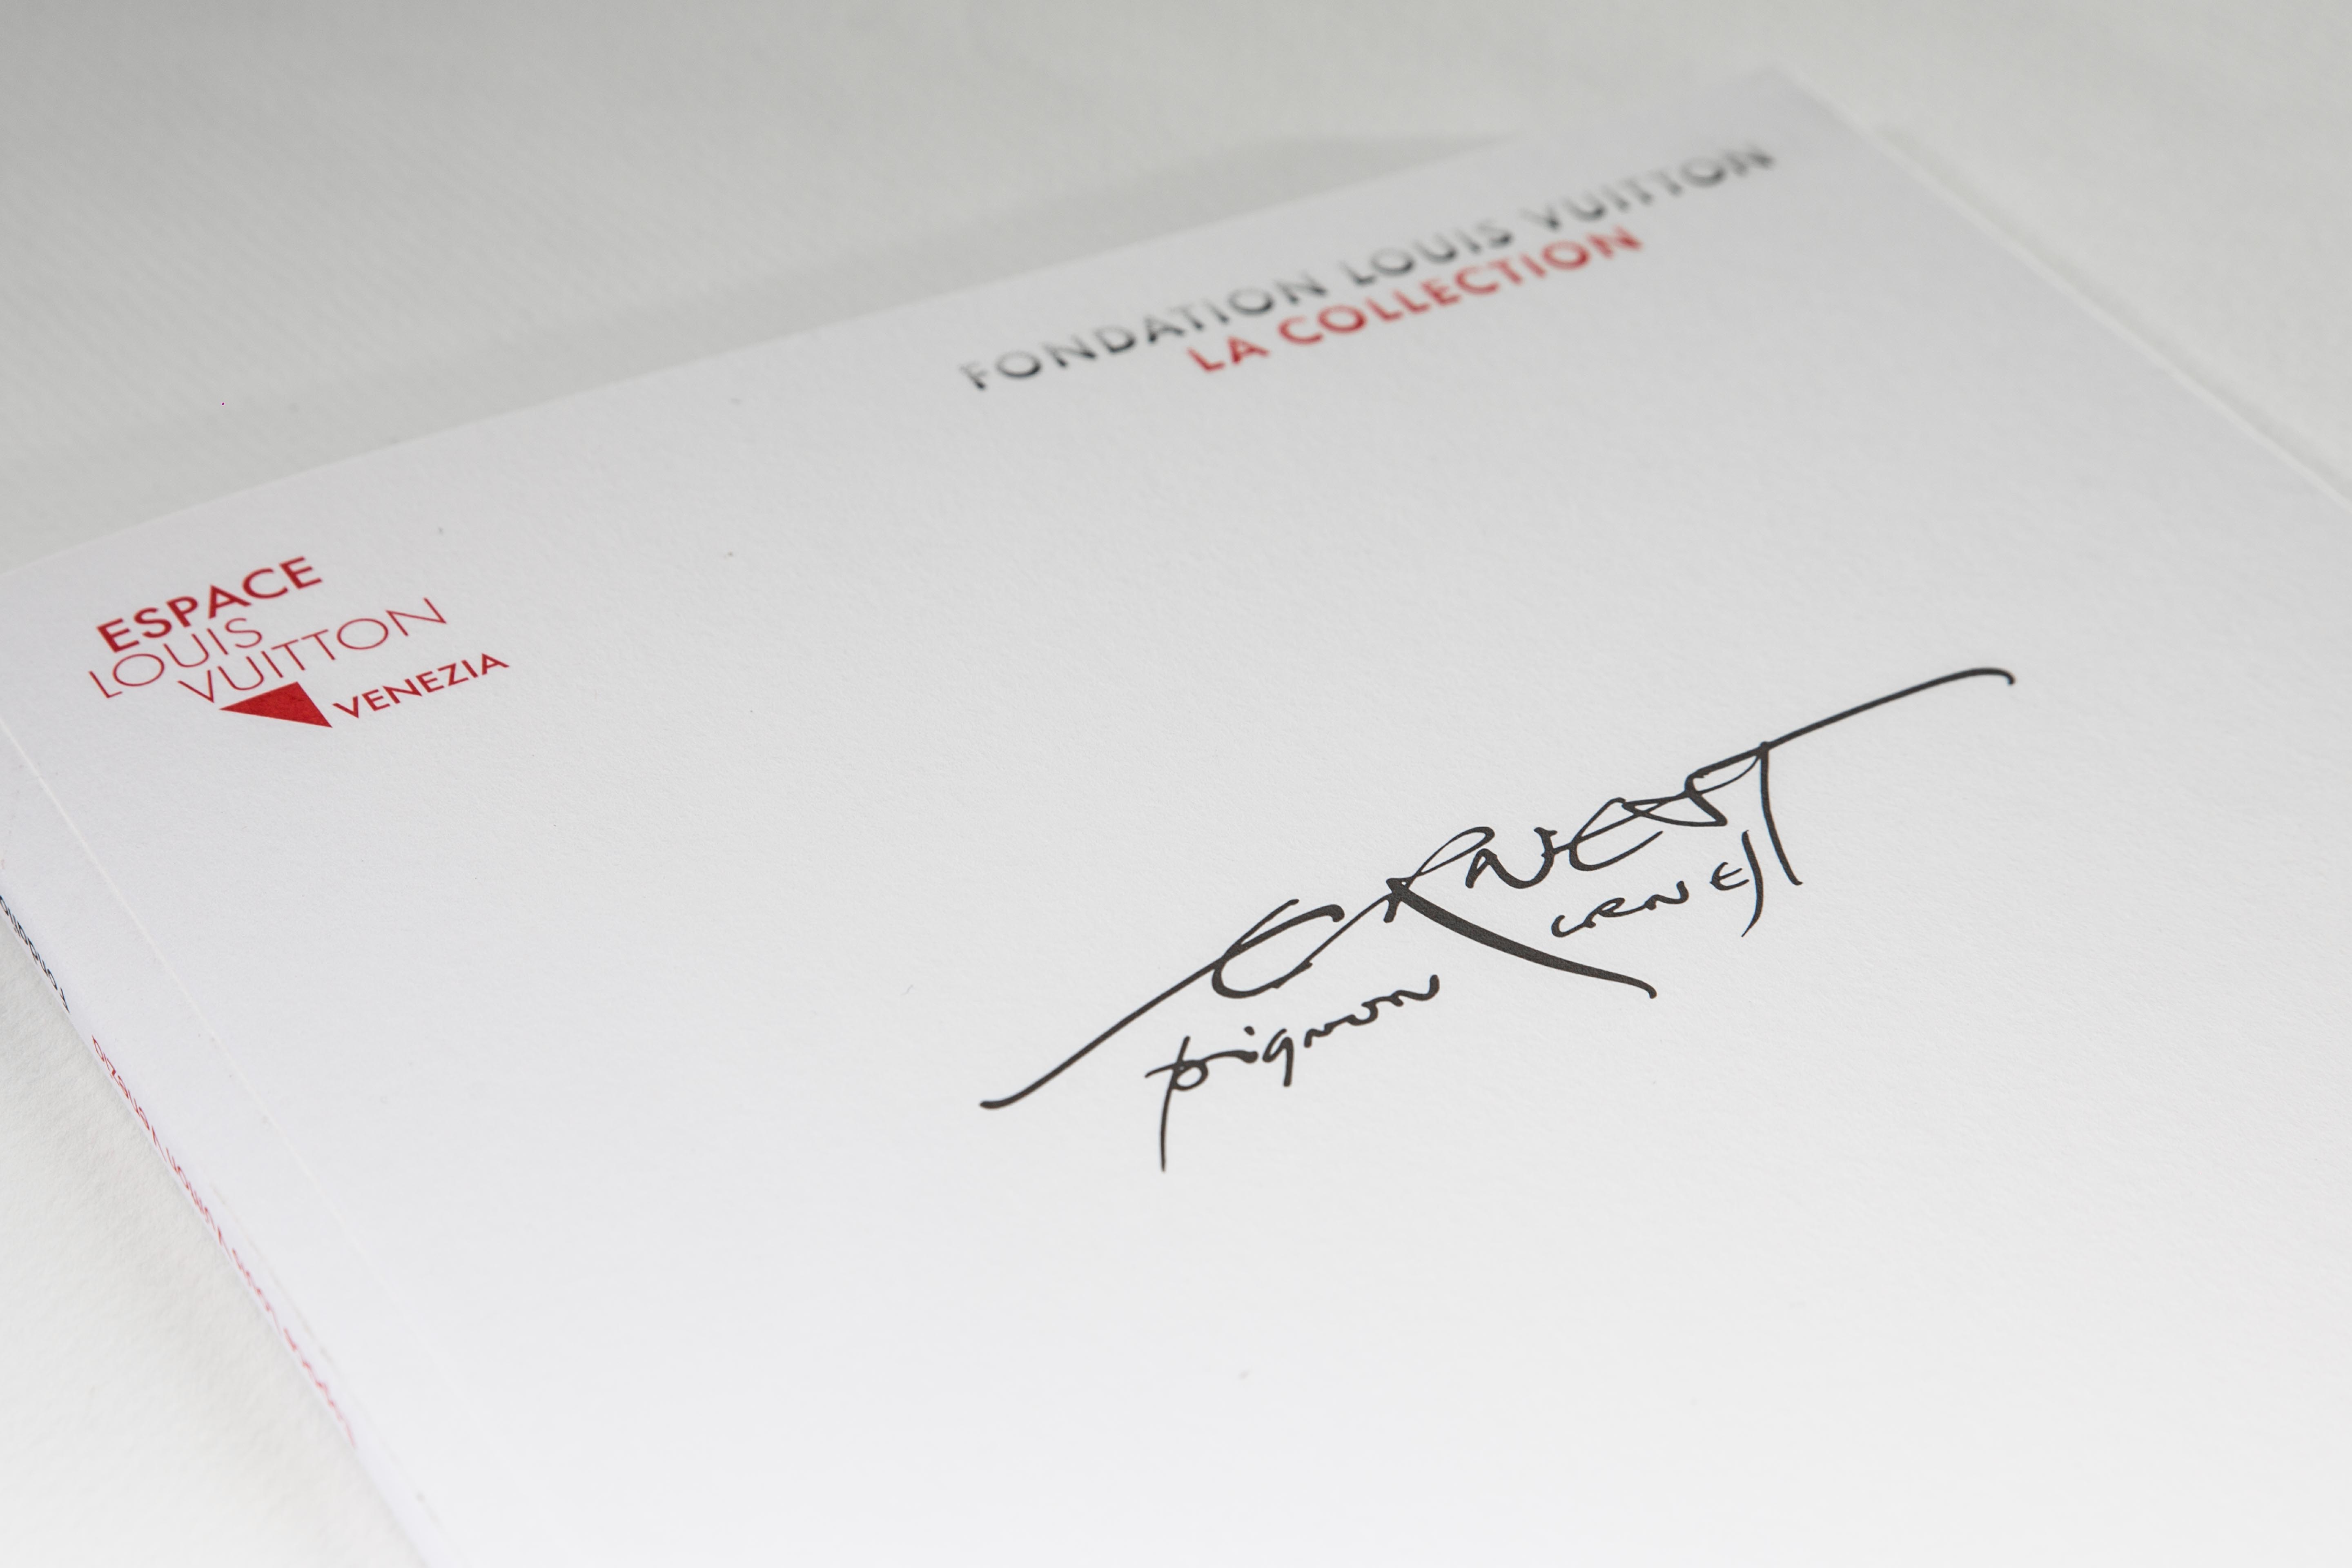 FONDATION LOUIS VUITTON
LA COLLECTION
ESPACE
LOUIS
VUITTON
VENEZIA
ERNEST
pignon ernest